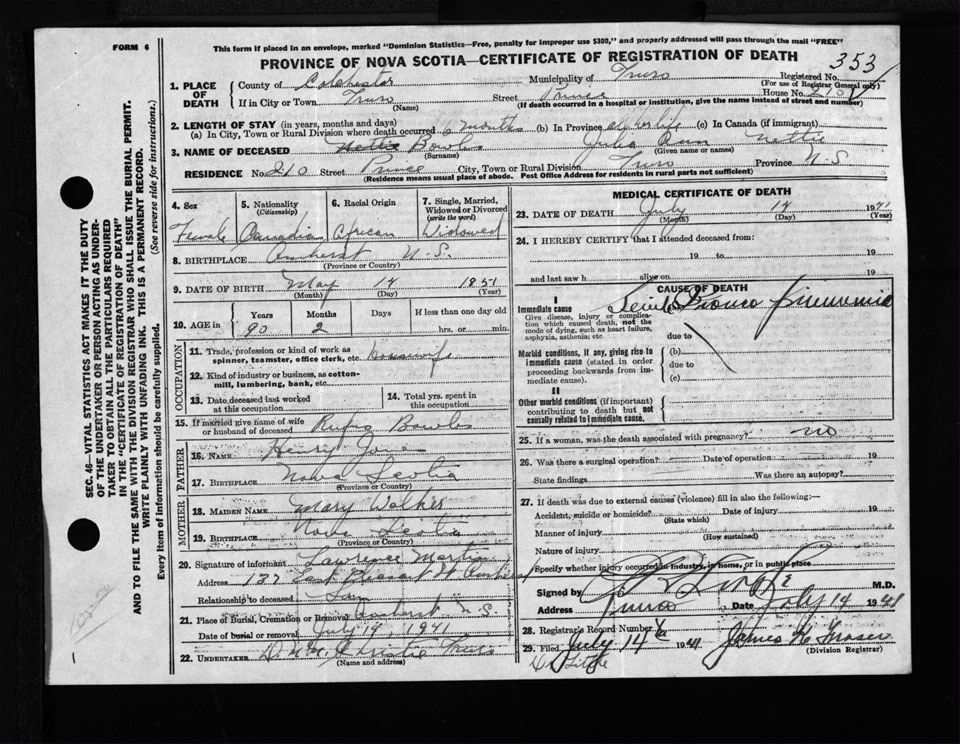 FORM 6
This form if placed in an envelope, marked "Dominion Statistics—Free, penalty for improper use $300," and properly addressed will pass through the mail "FREE"
PROVINCE OF NOVA SCOTIA—CERTIFICATE OF REGISTRATION OF DEATH
353
1. PLACE OF DEATH
County of Colchester Municipality of Truro Registered No.
(For use of Registrar General only)
If in City or Town Truro Street Prince House No. 210
(Name) (If death occurred in a hospital or institution, give the name instead of street and number)
2. LENGTH OF STAY (in years, months and days)
(a) In City, Town or Rural Division where death occurred 6 months (b) In Province all her life (c) In Canada (if immigrant)
3. NAME OF DECEASED Nettie Bowles Julia Ann Nettie
(Surname) (Given name or names)
RESIDENCE No. 210 Street Prince City, Town or Rural Division Truro Province N-S
(Residence means usual place of abode. Post Office Address for residents in rural parts not sufficient)
4. Sex
Female
5. Nationality
(Citizenship)
Canadian
6. Racial Origin
African
7. Single, Married, Widowed or Divorced
(write the word)
Widowed
8. BIRTHPLACE Amherst N-S.
(Province or Country)
9. DATE OF BIRTH May 14 1851
(Month) (Day) (Year)
10. AGE in Years Months Days If less than one day old
90 2 hrs. or min.
OCCUPATION
11. Trade, profession or kind of work as spinner, teamster, office clerk, etc. Housewife
12. Kind of industry or business, as cotton-mill, lumbering, bank, etc.
13. Date deceased last worked at this occupation
14. Total yrs. spent in this occupation
15. If married give name of wife or husband of deceased Rufus Bowles
FATHER
16. NAME Henry Jones
17. BIRTHPLACE Nova Scotia
(Province or Country)
MOTHER
18. MAIDEN NAME Mary Walker
19. BIRTHPLACE Nova Scotia
(Province or Country)
20. Signature of informant Lawrence Martin
Address 137 East Pleasant St Amherst
Relationship to deceased Son
21. Place of Burial, Cremation or Removal Amherst N.S.
Date of burial or removal July 14, 1941
22. UNDERTAKER Christie Truro
(Name and address)
MEDICAL CERTIFICATE OF DEATH
23. DATE OF DEATH July 14 1941
(Month) (Day) (Year)
24. I HEREBY CERTIFY that I attended deceased from:
19 to 19
and last saw h alive on 19
CAUSE OF DEATH
I
Immediate cause
Give disease, injury or complication which caused death, not the mode of dying, such as heart failure, asphyxia, asthenia; etc
Senile Bronco pneumonia
due to
Morbid conditions, if any, giving rise to immediate cause (stated in order proceeding backwards from immediate cause).
(b)
due to
(c)
II
Other morbid conditions (if important) contributing to death but not causally related to immediate cause.
25. If a woman, was the death associated with pregnancy? no
26. Was there a surgical operation? Date of operation 19
State findings Was there an autopsy?
27. If death was due to external causes (violence) fill in also the following:—
Accident, suicide or homicide? Date of injury 19
(State which)
Manner of injury
(How sustained)
Nature of injury
Specify whether injury occurred in industry, in home, or in public place
Signed by M.D.
Address Truro Date July 14 1941
28. Registrar's Record Number
29. Filed July 14th 1941 James H. Fraser
(Division Registrar)
SEC. 46—VITAL STATISTICS ACT MAKES IT THE DUTY
OF THE UNDERTAKER OR PERSON ACTING AS UNDERTAKER TO OBTAIN ALL THE PARTICULARS REQUIRED
IN THE "CERTIFICATE OF REGISTRATION OF DEATH"
AND TO FILE THE SAME WITH THE DIVISION REGISTRAR WHO SHALL ISSUE THE BURIAL PERMIT.
WRITE PLAINLY WITH UNFADING INK. THIS IS A PERMANENT RECORD.
Every item of information should be carefully supplied. (See reverse side for instructions.)